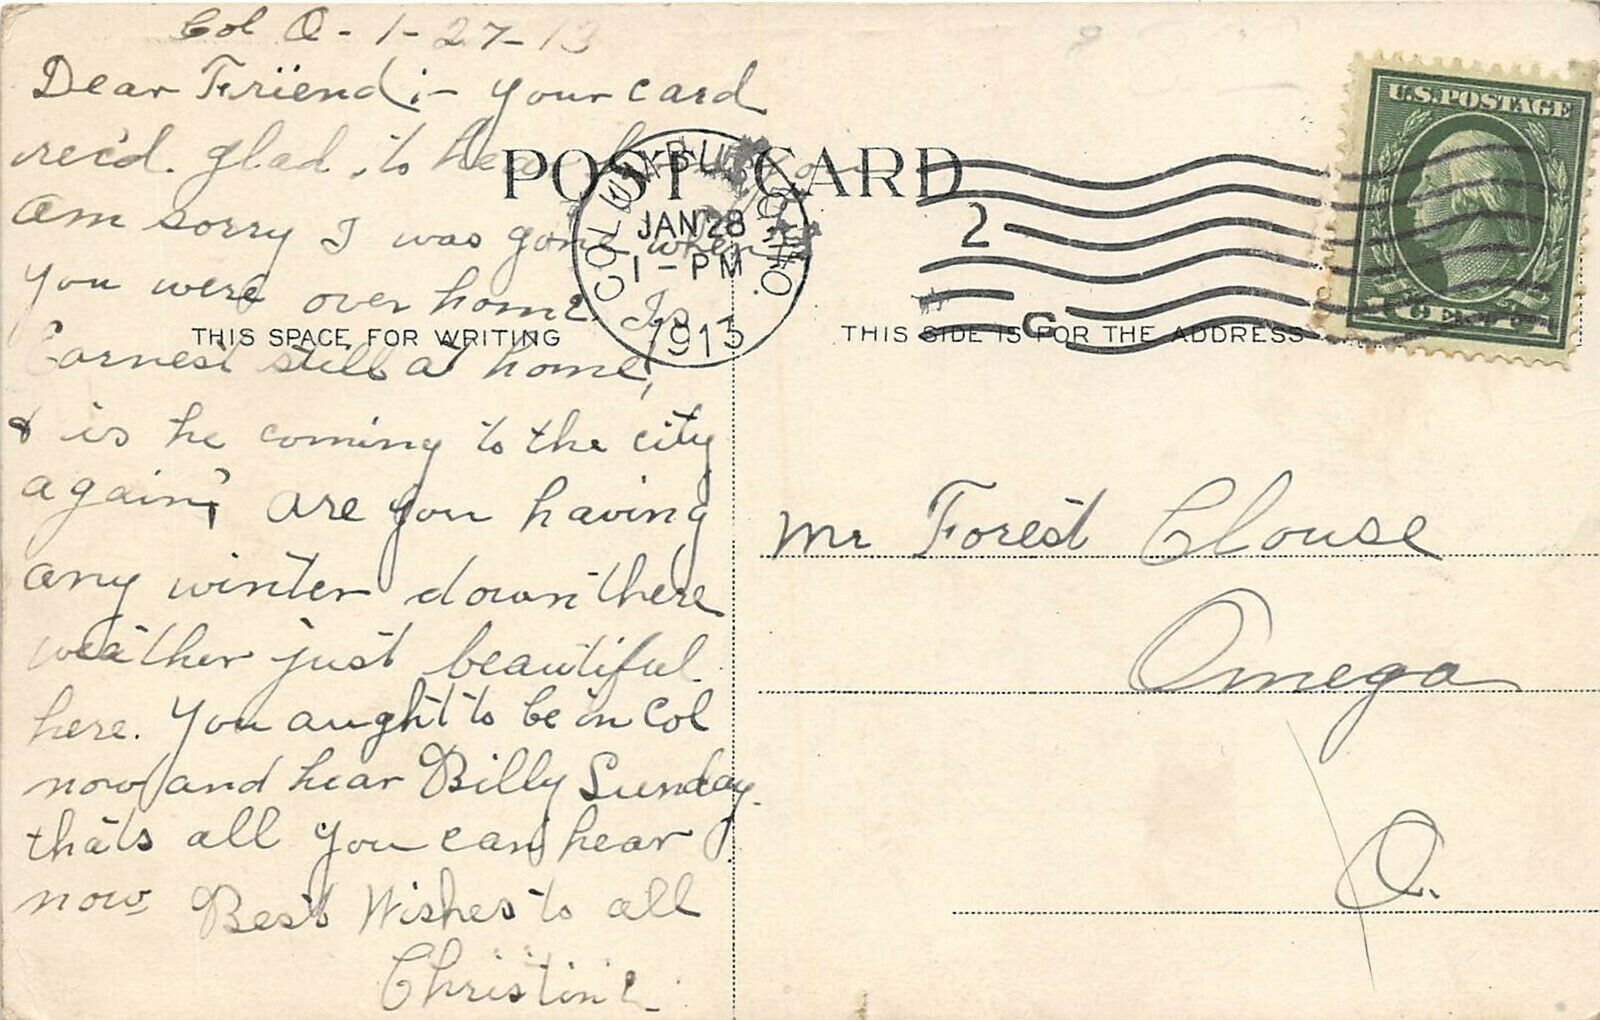 Col O - 1-27-13
Dear Friend ;- your card
rec'd. glad to hear from you
am sorry I was gone when
you were over home. Is
Earnest still at home,
& is he coming to the city
again, are you having
any winter down there
weather just beautiful
here. You aught to be in Col
now and hear Billy Sunday.
thats all you can hear
now. Best Wishes to all
Christine.
POST CARD
THIS SPACE FOR WRITING
THIS SIDE IS FOR THE ADDRESS
COLUMBUS, OHIO.
JAN 28
1 - PM
1913
2
C
U.S. POSTAGE
Mr Forest Clouse
Omega
O.